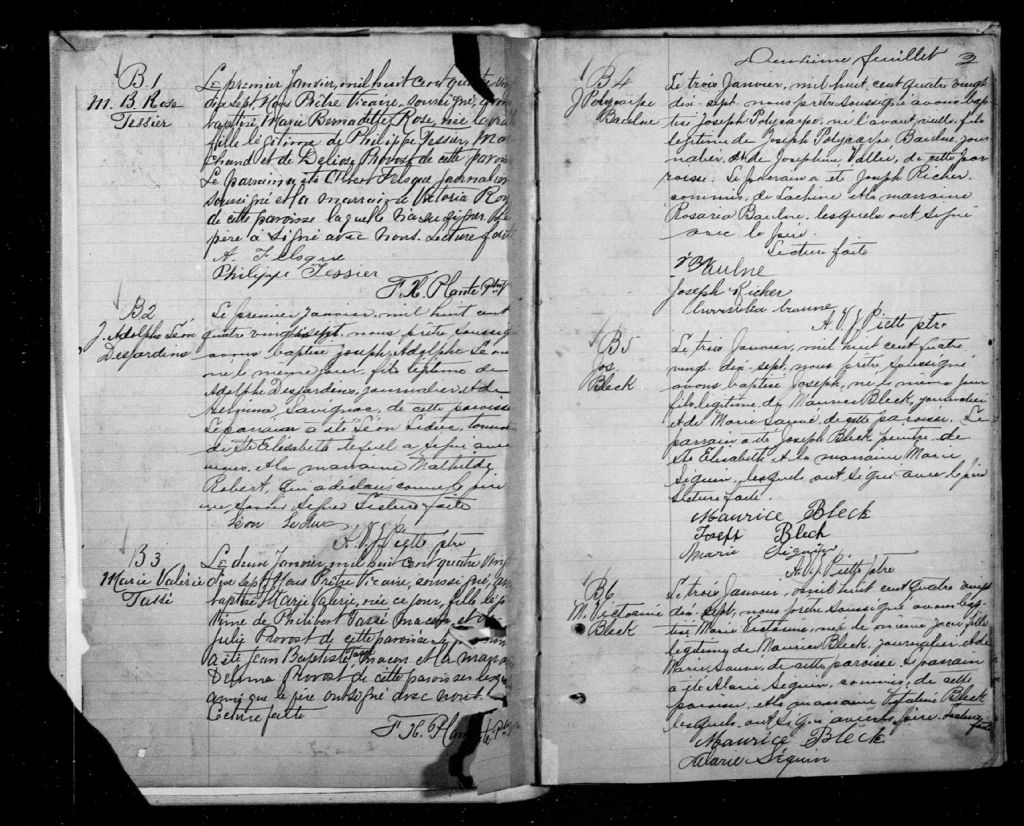 B.1
M. B. Rose
Tessier
Le premier Janvier, mil huit cent quatre vin
dix sept, Nous Prêtre Vicaire, soussigné, avons
baptisé, Marie Bernadette, Rose, née la
fille légitime de Philippe Tessier, Mar
chand et de Delica Provost de cette parois
Le parrain a été Albert journalier
soussigné et la marraine Victoria
de cette paroisse laquelle n'a su signer. Le
père a signé avec nous. Lecture faite
A.
Philippe Tessier
F. X. Plante Ptre
B2
J. Adolphe Léon
Desjardins
Le premier janvier, mil huit cent
quatre vingt sept, nous prêtre soussig
avons baptisé joseph, Adolphe Léon
né le même jour, fils légitime de
Adolphe Desjardins, journalier et de
Savignac, de cette paroisse
Le parrain a été Léon Leduc,
de Ste Elisabeth lequel a signé avec
nous, et la marraine Mathilde
Robert, qui a déclaré, comme le père
ne savoir signer Lecture faite
Léon Leduc
A. V. J. Piette ptre
B3
Marie Valérie
Tassé
Le deux Janvier, mil huit cent quatre vin
dix sept, Nous Prêtre Vicaire, soussigné, av
baptisé Marie Valerie, née ce jour, fille légi
time de Philibert Tassé maçon, et de
Julie Provost de cette paroisse Le parrain
a été Jean Baptiste Tassé maçon et la marra
Provost de cette paroisse lesqu
ainsi que le père ont signé avec nous.
Lecture faite
F. X. Plante Ptre
Deuxième feuillet 2
B4
J Polycarpe
Baulne
Le trois Janvier, mil huit cent quatre vingt
dix-sept, nous prêtre soussigné avons bap
tisé Joseph Polycarpe, né l'avant veille, fils
légitime de Joseph Polycarpe Baulne, jour
nalier, et de Josephine Vallée, de cette pa
roisse. Le parrain a été Joseph Richer
commis, de Lachine et la marraine
Rosaria Baulne, lesquels ont signé
avec le père.
Lecture faite
Baulne
Joseph Richer
A. V. J. Piette ptre
B5
Jos.
Bleck
Le trois Janvier, mil huit cent quatre
vingt dix-sept, nous prêtre soussigné
avons baptisé Joseph, né le même jour
fils légitime de Maurice Bleck, journalier
et de Marie Sauvé, de cette paroisse. Le
parrain a été Joseph Bleck peintre de
Ste Elisabeth et la marraine Marie
Séguin, lesquels ont signé avec le père
Lecture faite.
Maurice Bleck
Joseph Bleck
Marie Séguin
A. V. J. Piette ptre
B6
M. Victorine
Bleck
Le trois Janvier, mil huit cent quatre vingt
dix-sept, nous prêtre soussigné avons bap-
tisé Marie Victorine, née le même jour fille
légitime de Maurice Bleck, journalier et de
Marie Sauvé, de cette paroisse. Le parrain
a été Séguin, commis, de cette
paroisse, et la marraine Bleck
lesquels ont signé avec le père. Lecture
faite
Maurice Bleck
Séguin